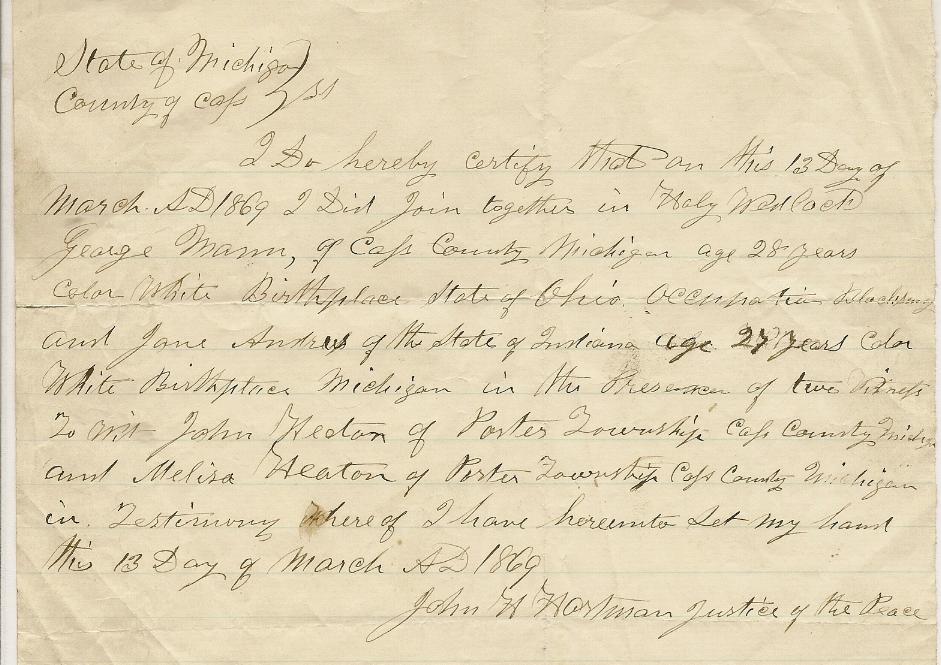 State of Michigan)
County of Cass )ss
I Do hereby certify that on this 13 Day of
March AD 1869 I Did Join together in Holy Wedlock
George Mann, of Cass County Michigan age 28 years
Color White Birthplace State of Ohio. Occupation
and Jane Andrus of the State of Indiana age 27 years Color
White Birthplace Michigan in the Presence of two Witness
To Wit John Heaton of Porter Township Cass County
and Melisa Heaton of Porter Township Cass County Michigan
in Testimony Whereof I have hereunto Set my hand
this 13 Day of March AD 1869
John H Hortman Justice of the Peace